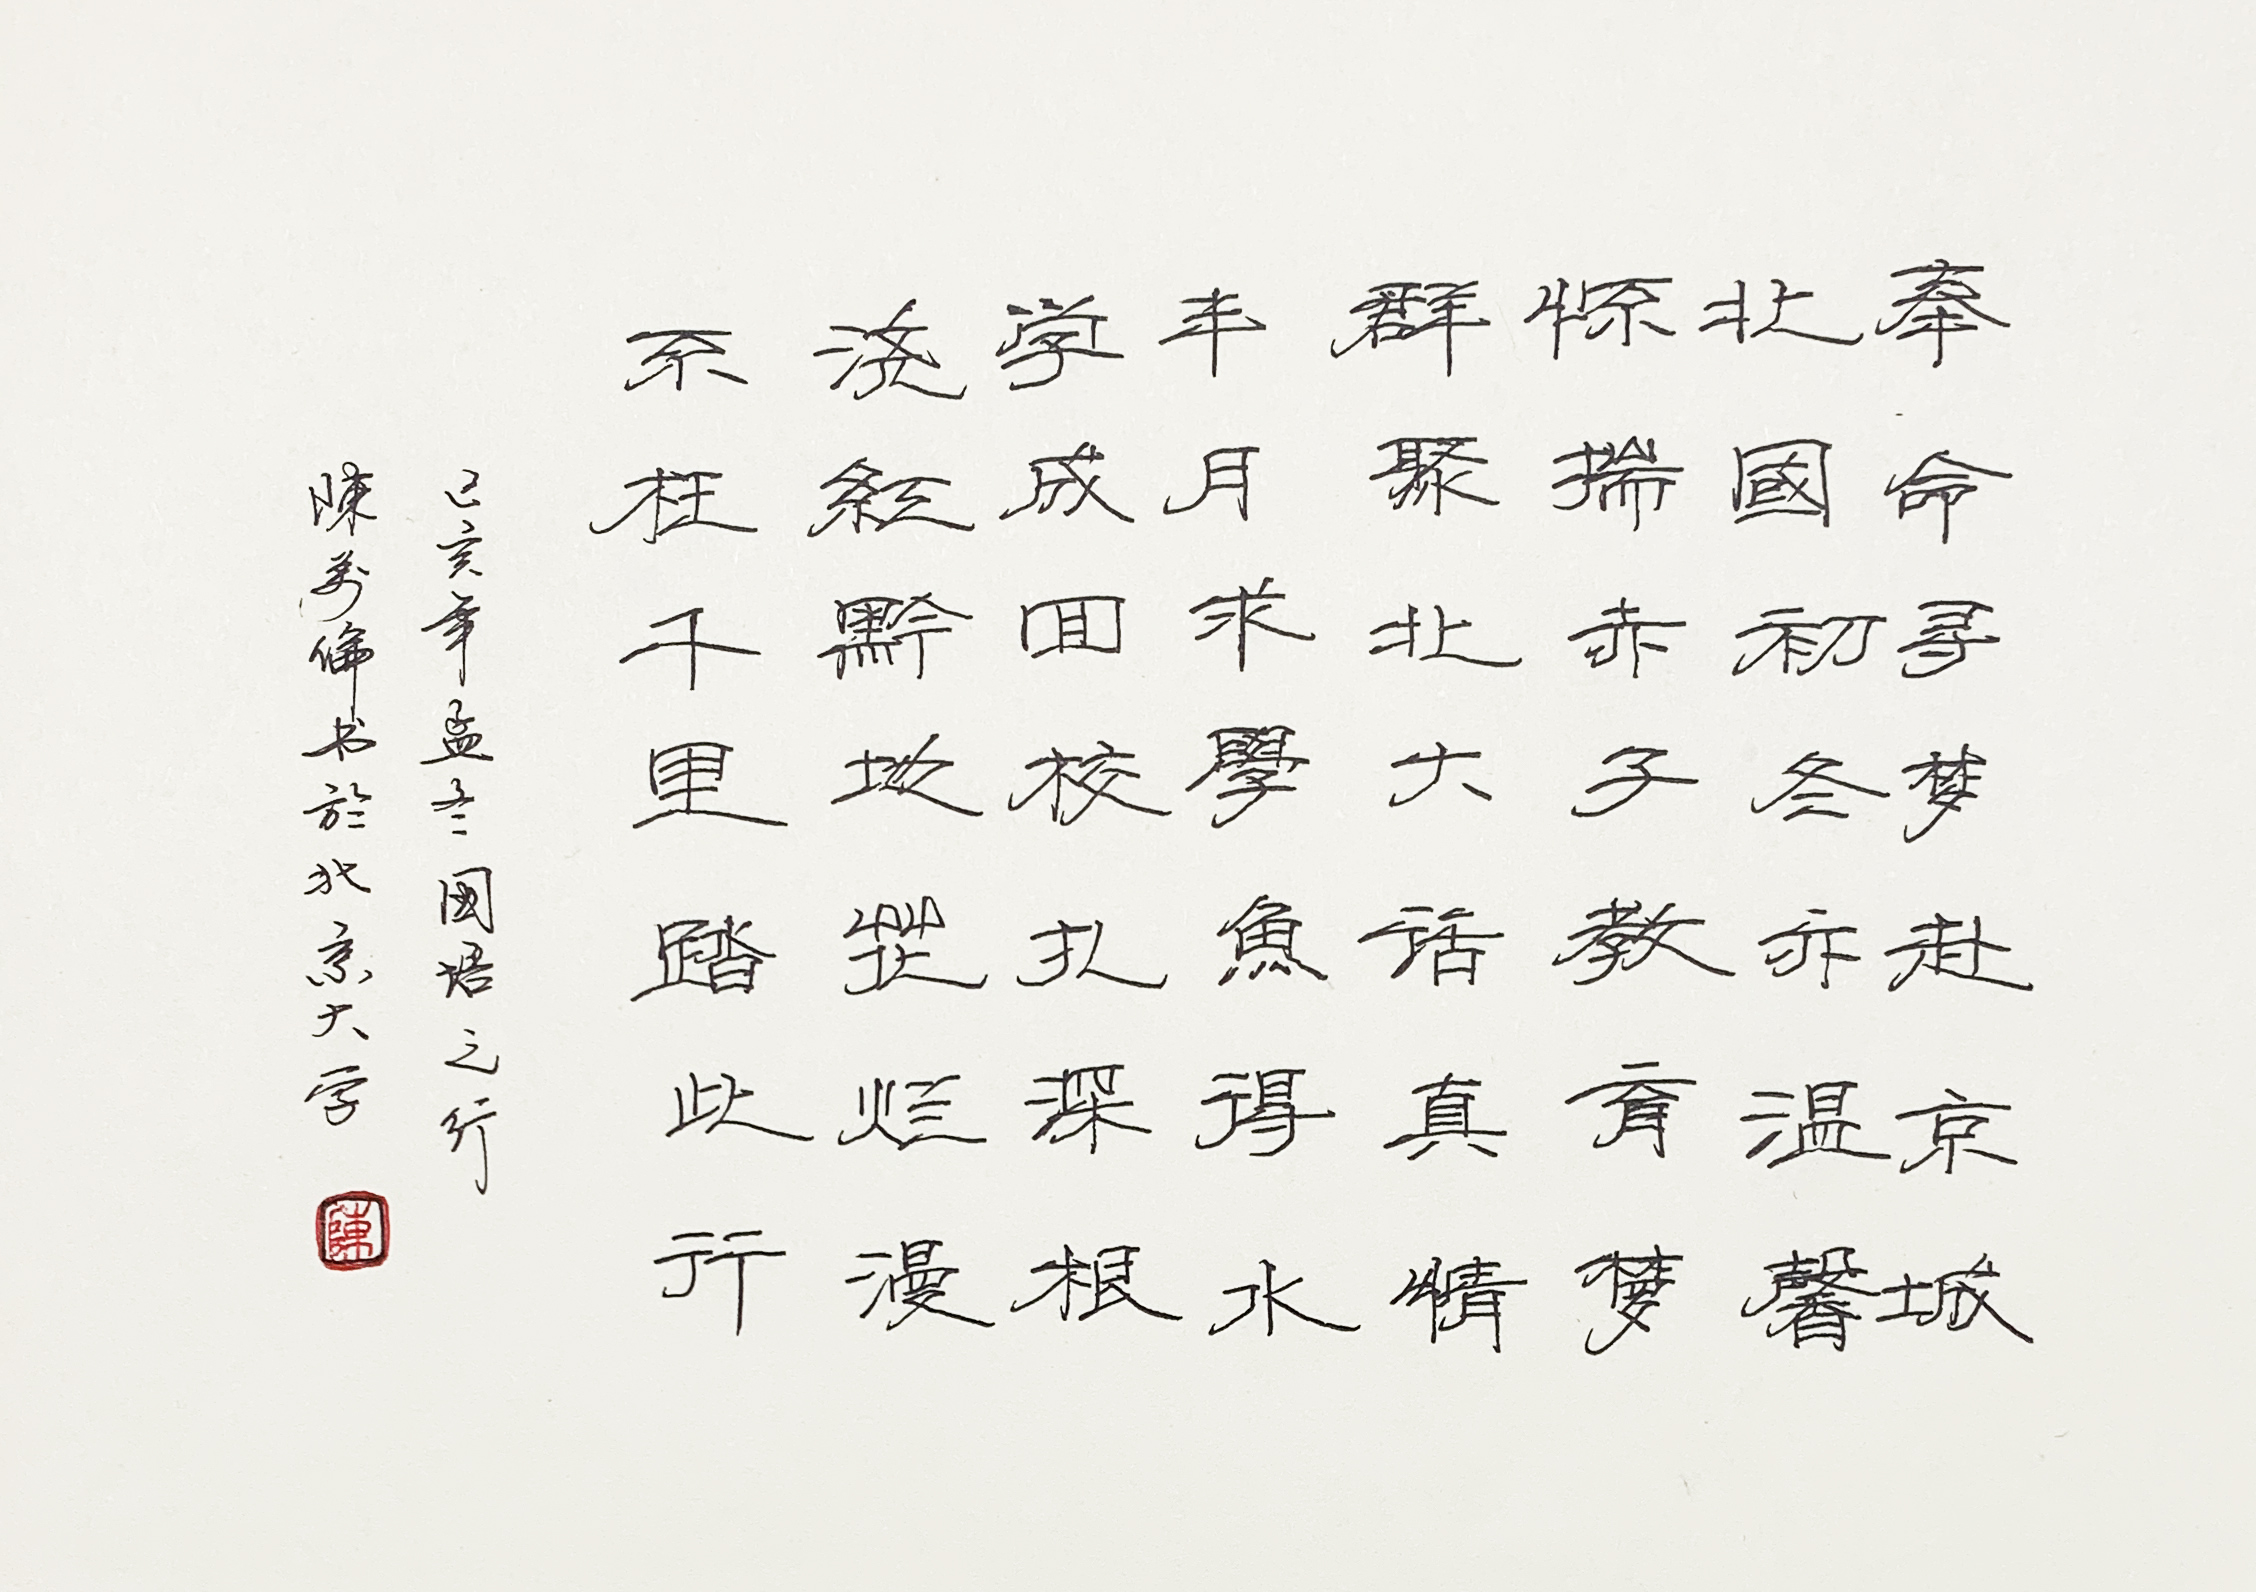 奉命寻梦赴京城
北國初冬亦温馨
怀揣赤子教育夢
群聚北大话真情
半月求學魚得水
学成回校扎深根
浇红黔地花烂漫
不枉千里踏此行
己亥年孟冬國培之行
陳 书於北京大学
陳